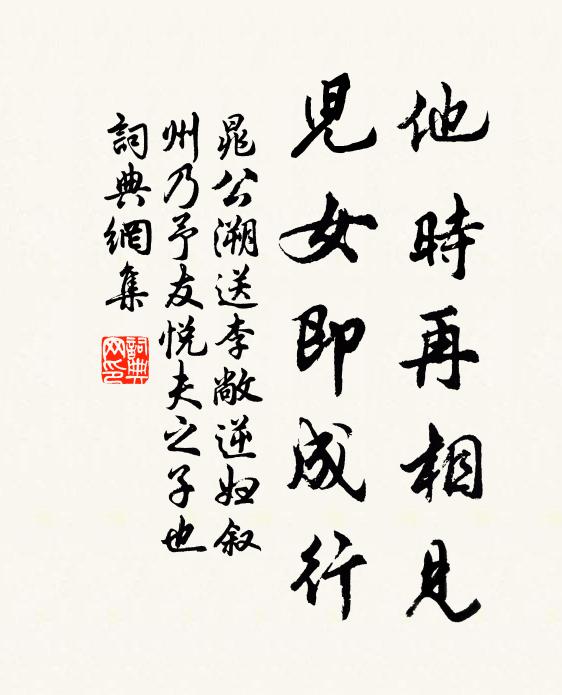 他時再相見
兒女即成行
晁公溯送李敞逆妇叙
州乃予友悦夫之子也
詞典網集
詞典網印